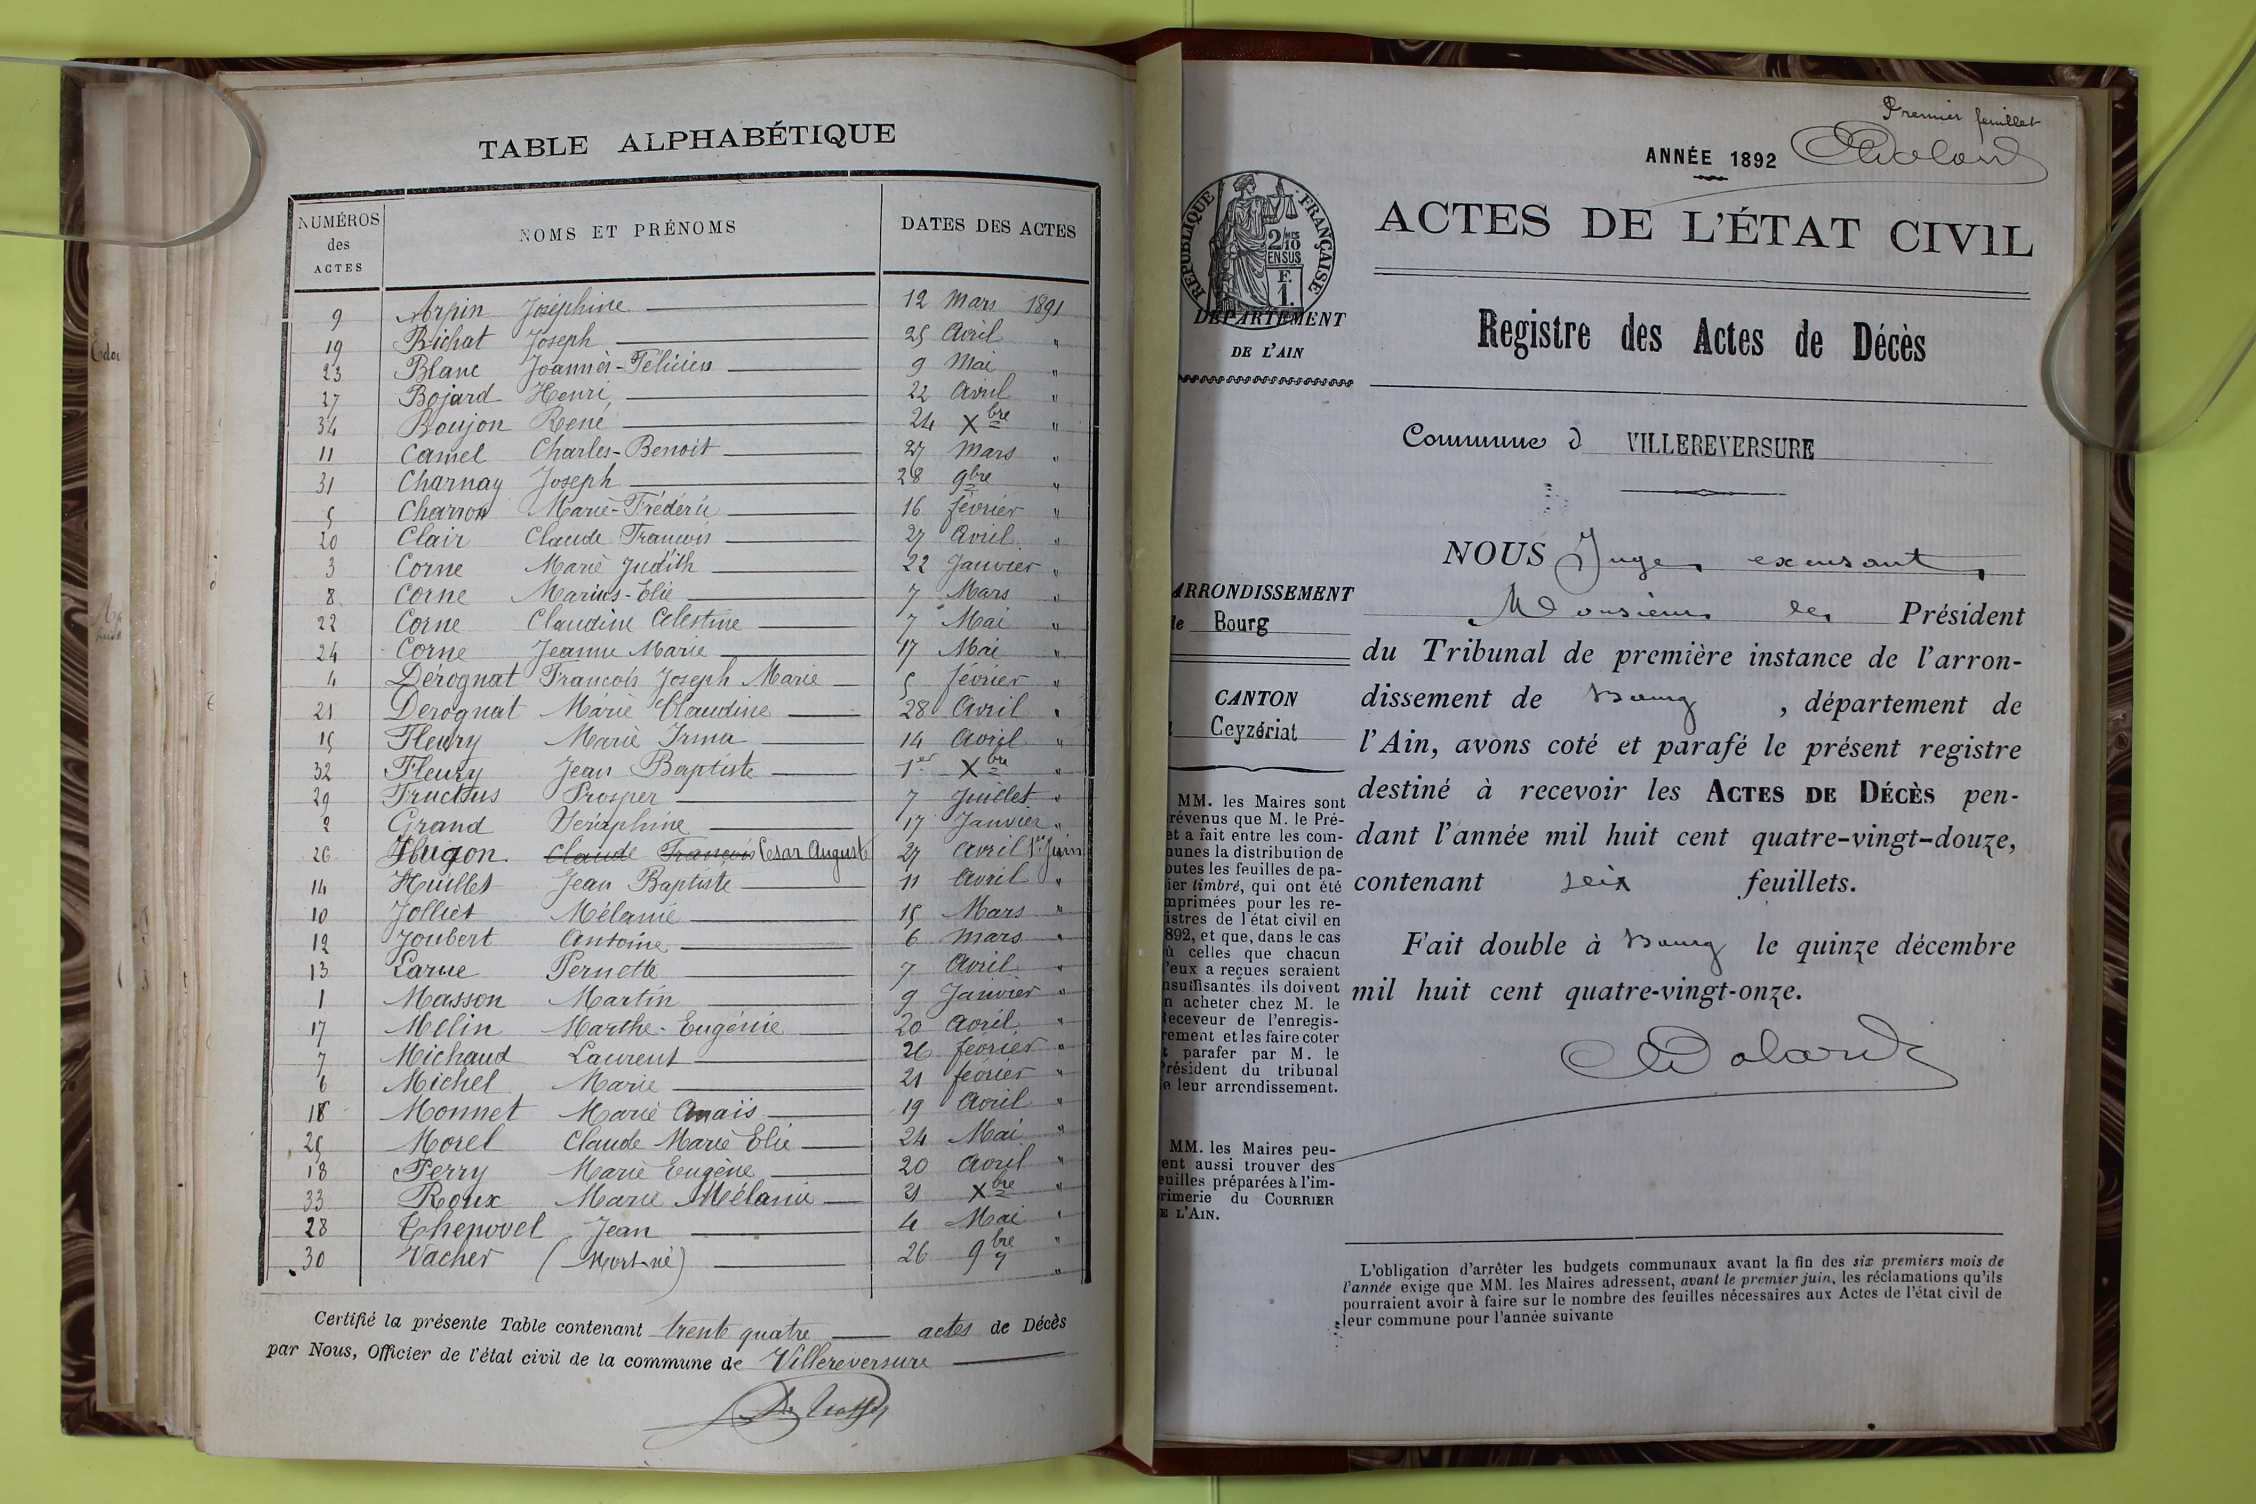 TABLE ALPHABÉTIQUE
NUMÉROS des ACTES NOMS ET PRÉNOMS DATES DES ACTES
9 Arpin Joséphine 12 Mars 1891
19 Bichat Joseph 25 Avril "
23 Blanc Joannès-Félicien 9 Mai "
27 Bojard Henri 22 Avril "
34 Boujon René 24 Xbre "
11 Camel Charles-Benoit 27 Mars "
31 Charnay Joseph 28 9bre "
5 Charron Marie-Frédéric 16 février "
20 Clair Claude François 27 Avril "
3 Corne Marie Judith 22 Janvier "
8 Corne Marius-Elie 7 Mars "
22 Corne Claudine Célestine 7 Mai "
24 Corne Jeanne Marie 17 Mai "
4 Dérognat François Joseph Marie 5 février "
21 Dérognat Marie Claudine 28 Avril "
15 Fleury Marie Irma 14 Avril "
32 Fleury Jean Baptiste 1er Xbre "
29 Fructus Prosper 7 Juillet "
2 Grand Séraphine 17 Janvier "
26 Hugon Claude François Cesar August 27 Avril 1er Juin
14 Huillet Jean Baptiste 11 Avril "
10 Jolliet Mélanie 15 Mars "
12 Joubert Antoine 6 Mars "
13 Larue Pernette 7 Avril "
1 Masson Martin 9 Janvier "
17 Melin Marthe-Eugénie 20 Avril "
7 Michaud Laurent 26 février "
6 Michel Marie 21 février "
16 Monnet Marie Anais 19 Avril "
25 Morel Claude Marie Elie 24 Mai "
18 Perry Marie Eugène 20 Avril "
33 Roux Marie Mélanie 21 Xbre "
28 Thepovel Jean 4 Mai "
30 Vacher (Mort-né) 26 9bre "
Certifié la présente Table contenant trente quatre actes de Décès
par Nous, Officier de l'état civil de la commune de Villereversure
Premier feuillet
ANNÉE 1892
RÉPUBLIQUE FRANÇAISE
2/10 MES
EN SUS
F.
1.
ACTES DE L'ÉTAT CIVIL
DÉPARTEMENT
DE L'AIN
Registre des Actes de Décès
Commune d VILLEREVERSURE
ARRONDISSEMENT
de Bourg
CANTON
Ceyzériat
NOUS Juge excusant
Monsieur le Président
du Tribunal de première instance de l'arron-
dissement de Bourg, département de
l'Ain, avons coté et parafé le présent registre
destiné à recevoir les ACTES DE DÉCÈS pen-
dant l'année mil huit cent quatre-vingt-douze,
contenant seix feuillets.
Fait double à Bourg le quinze décembre
mil huit cent quatre-vingt-onze.
MM. les Maires sont
révenus que M. le Pré-
et a fait entre les com-
munes la distribution de
outes les feuilles de pa-
ier timbré, qui ont été
mprimées pour les re-
istres de l'état civil en
892, et que, dans le cas
ù celles que chacun
'eux a reçues seraient
nsuffisantes ils doivent
n acheter chez M. le
Receveur de l'enregis-
rement et les faire coter
t parafer par M. le
Président du tribunal
e leur arrondissement.
MM. les Maires peu-
ent aussi trouver des
euilles préparées à l'im-
rimerie du COURRIER
E L'AIN.
L'obligation d'arrêter les budgets communaux avant la fin des six premiers mois de
l'année exige que MM. les Maires adressent, avant le premier juin, les réclamations qu'ils
pourraient avoir à faire sur le nombre des feuilles nécessaires aux Actes de l'état civil de
leur commune pour l'année suivante